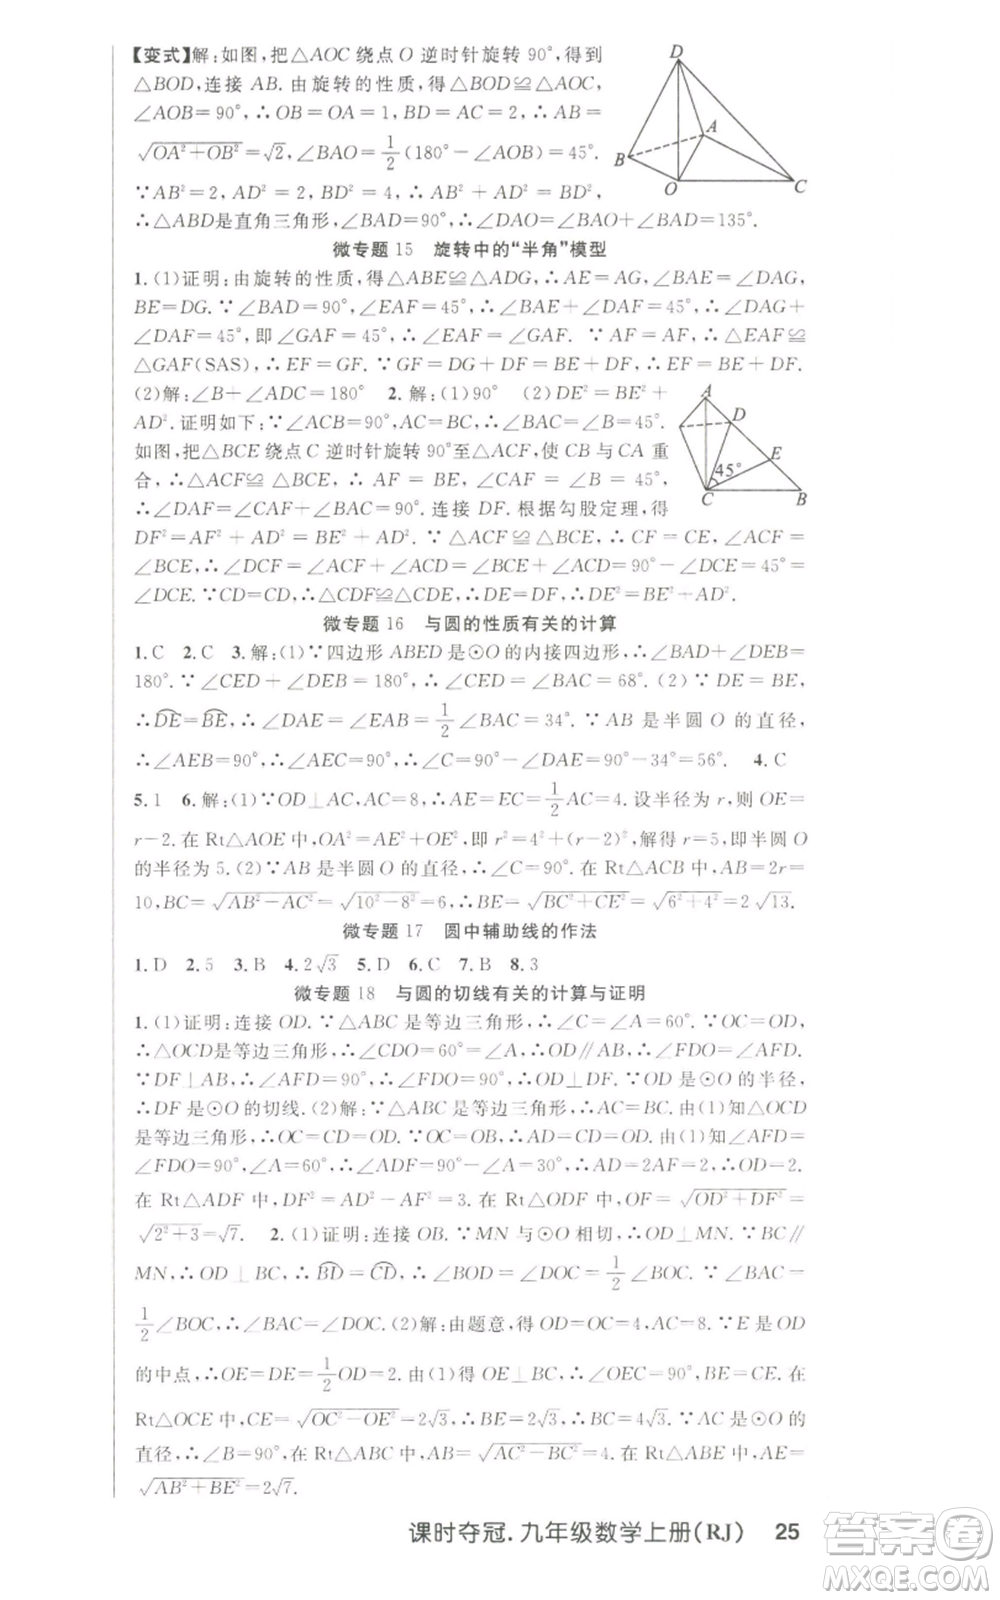 【变式】解:如图,把△AOC 绕点 O 逆时针旋转 90°,得到
△BOD,连接 AB. 由旋转的性质,得△BOD≌△AOC,
∠AOB=90°,∴OB=OA=1,BD=AC=2,∴AB=
√(OA²+OB²)=√2,∠BAO=1/2(180°-∠AOB)=45°.
∵AB²=2,AD²=2,BD²=4,∴AB²+AD²=BD²,
∴△ABD是直角三角形,∠BAD=90°,∴∠DAO=∠BAO+∠BAD=135°.
D
A
B
O
C
微专题 15 旋转中的“半角”模型
1.(1)证明:由旋转的性质,得△ABE≌△ADG,∴AE=AG,∠BAE=∠DAG,
BE=DG.∵∠BAD=90°,∠EAF=45°,∴∠BAE+∠DAF=45°,∴∠DAG+
∠DAF=45°,即∠GAF=45°,∴∠EAF=∠GAF. ∵AF=AF,∴△EAF≌
△GAF(SAS),∴EF=GF. ∵GF=DG+DF=BE+DF,∴EF=BE+DF.
(2)解:∠B+∠ADC=180° 2.解:(1)90° (2)DE²=BE²+
AD². 证明如下:∵∠ACB=90°,AC=BC,∴∠BAC=∠B=45°.
如图,把△BCE 绕点 C 逆时针旋转 90°至△ACF,使 CB 与 CA 重
合,∴△ACF≌△BCE,∴AF=BE,∠CAF=∠B=45°,
∴∠DAF=∠CAF+∠BAC=90°. 连接 DF. 根据勾股定理,得
DF²=AF²+AD²=BE²+AD².∵△ACF≌△BCE,∴CF=CE,∠ACF=
∠BCE,∴∠DCF=∠ACF+∠ACD=∠BCE+∠ACD=90°-∠DCE=45°=
∠DCE.∵CD=CD,∴△CDF≌△CDE,∴DF=DE,∴DE²=BE²+AD².
A
D
E
45°
C
B
微专题 16 与圆的性质有关的计算
1.C 2.C 3.解:(1)∵四边形 ABED 是⊙O 的内接四边形,∴∠BAD+∠DEB=
180°.∵∠CED+∠DEB=180°,∴∠CED=∠BAC=68°.(2)∵DE=BE,
∴DE=BE,∴∠DAE=∠EAB=1/2∠BAC=34°.∵AB 是半圆 O 的直径,
∴∠AEB=90°,∴∠AEC=90°,∴∠C=90°-∠DAE=90°-34°=56°. 4.C
5.1 6.解:(1)∵OD⊥AC,AC=8,∴AE=EC=1/2AC=4. 设半径为 r,则 OE=
r-2. 在 Rt△AOE 中,OA²=AE²+OE²,即 r²=4²+(r-2)²,解得 r=5,即半圆 O
的半径为 5.(2)∵AB 是半圆 O 的直径,∴∠C=90°. 在 Rt△ABC 中,AB=2r=
10,BC=√(AB²-AC²)=√(10²-8²)=6,∴BE=√(BC²+CE²)=√(6²+4²)=2√13.
微专题 17 圆中辅助线的作法
1.D 2.5 3.B 4.2√3 5.D 6.C 7.B 8.3
微专题 18 与圆的切线有关的计算与证明
1.(1)证明:连接 OD.∵△ABC 是等边三角形,∴∠C=∠A=60°.∵OC=OD,
∴△OCD是等边三角形,∴∠CDO=60°=∠A,∴OD∥AB,∴∠FDO=∠AFD.
∵DF⊥AB,∴∠AFD=90°,∴∠FDO=90°,∴DF⊥OD.∵OD 是⊙O 的半径,
∴DF 是⊙O 的切线.(2)解:∵△ABC 是等边三角形,∴AC=BC. 由(1)知△OCD
是等边三角形,∴OC=CD=OD.∵OC=OB,∴AD=CD=OD. 由(1)知∠AFD=
∠FDO=90°,∠A=60°,∴∠ADF=90°-∠A=30°,∴OD=AD=2AF=2.
在 Rt△ADF 中,DF²=AD²-AF²=3. 在 Rt△ODF 中,OF=√(OD²+DF²)=
√(2²+3)=√7. 2.(1)证明:连接 OB.∵MN 与⊙O 相切,∴OD⊥MN.∵BC∥
MN,∴OD⊥BC,∴BD=CD,∴∠BOD=∠COD=1/2∠BOC.∵∠BAC=
1/2∠BOC,∴∠BAC=∠COD.(2)解:由题意,得 OD=OC=4,AC=8.∵E 是 OD
的中点,∴OE=DE=1/2OD=2. 由(1)得 OE⊥BC,∴∠OEC=90°,BE=CE. 在
Rt△OCE 中,CE=√(OC²-OE²)=2√3,∴BE=2√3,BC=4√3.∵AC 是⊙O 的
直径,∴∠B=90°,在Rt△ABC 中,AB=√(AC²-BC²)=4. 在 Rt△ABE 中,AE=
√(AB²+BE²)=2√7.
课时夺冠.九年级数学上册(RJ) 25
作业精灵
MXQE.COM